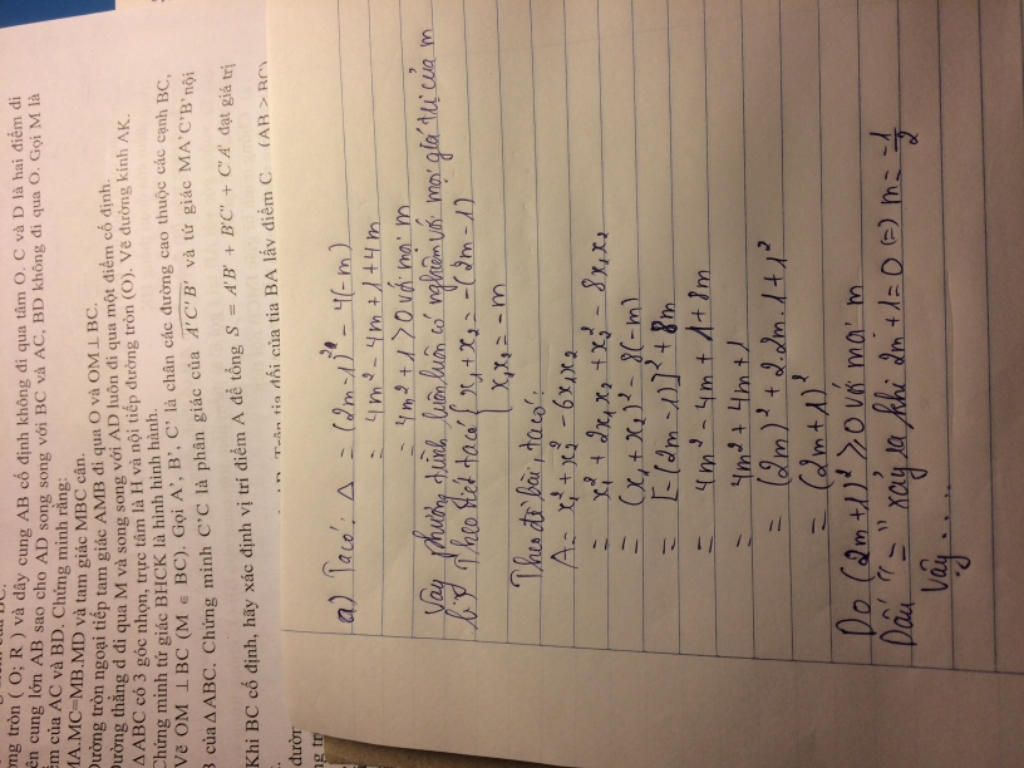 ng tròn ( O; R ) và dây cung AB cố định không đi qua tâm O. C và D là hai điểm di
ên cung lớn AB sao cho AD song song với BC và AC, BD không đi qua O. Gọi M là
ểm của AC và BD. Chứng minh rằng:
MA.MC=MB.MD và tam giác MBC cân.
Đường tròn ngoại tiếp tam giác AMB đi qua O và OM⊥BC.
Đường thẳng d đi qua M và song song với AD luôn đi qua một điểm cố định.
ΔABC có 3 góc nhọn, trực tâm là H và nội tiếp đường tròn (O). Vẽ đường kính AK.
Chứng minh tứ giác BHCK là hình bình hành.
Vẽ OM ⊥ BC (M ∈ BC). Gọi A', B', C' là chân các đường cao thuộc các cạnh BC,
B của ΔABC. Chứng minh C'C là phân giác của A'C'B' và tứ giác MA'C'B' nội
Khi BC cố định, hãy xác định vị trí điểm A để tổng S = A'B' + B'C' + C'A' đạt giá trị
Trên tia đối của tia BA lấy điểm C (AB > BC)
đườn
a) Ta có: Δ = (2m-1)² - 4(-m)
= 4m² - 4m + 1 + 4m
= 4m² + 1 > 0 với mọi m
Vậy phương trình luôn luôn có nghiệm với mọi giá trị của m
b) Theo Viét ta có { x₁ + x₂ = -(2m-1)
x₁x₂ = -m
Theo đề bài, ta có:
A = x₁² + x₂² - 6x₁x₂
= x₁² + 2x₁x₂ + x₂² - 8x₁x₂
= (x₁ + x₂)² - 8(-m)
= [-(2m-1)]² + 8m
= 4m² - 4m + 1 + 8m
= 4m² + 4m + 1
= (2m)² + 2.2m.1 + 1²
= (2m+1)²
Do (2m+1)² ≥ 0 với mọi m
Dấu "=" xảy ra khi 2m+1=0 (=) m = -1/2
Vậy...